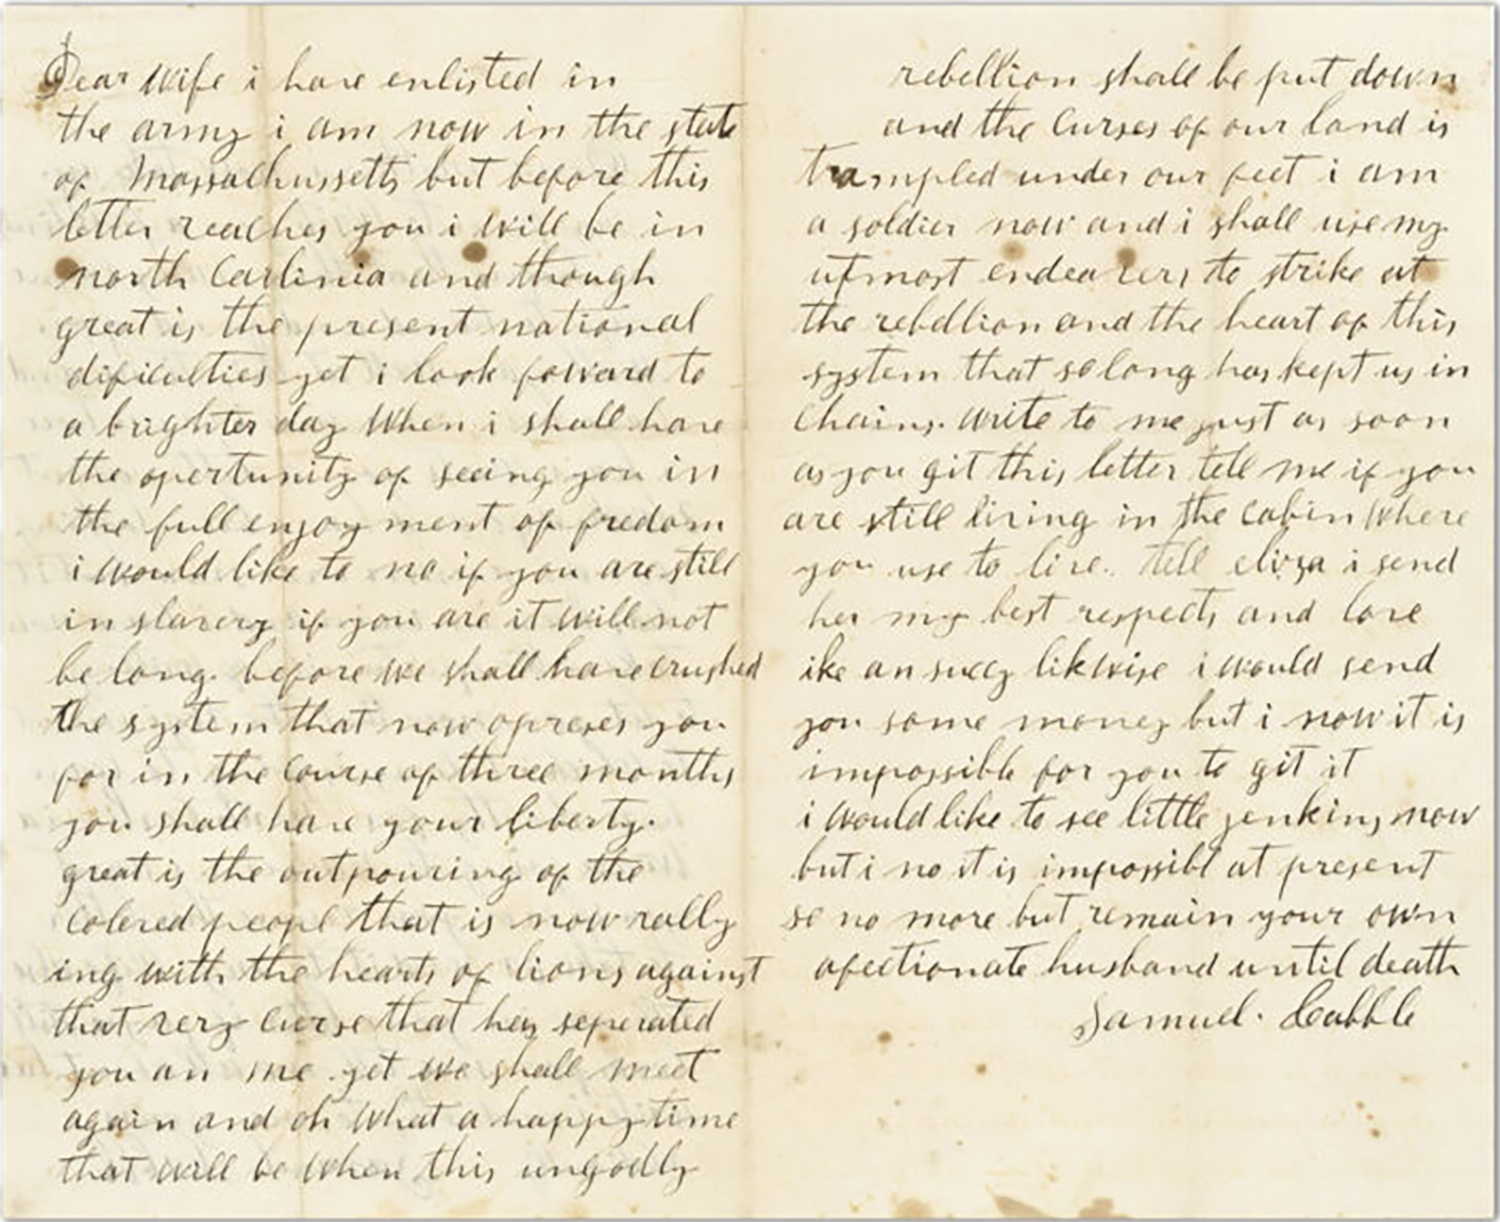 Dear Wife i have enlisted in
the army i am now in the state
of Massachussetts but before this
letter reaches you i will be in
north Carlinia and though
great is the present national
dificulties yet i look foward to
a brighter day When i shall have
the opertunity of seeing you in
the full enjoyment of fredom
i would like to no if you are still
in slavery if you are it will not
be long before we shall have crushed
the system that now opreses you
for in the course of three months
you shall have your liberty.
great is the outpouring of the
colered peopl that is now rally
ing with the hearts of lions against
that very curse that has seperated
you an me yet we shall meet
again and oh what a happy time
that will be when this ungodly
rebellion shall be put down
and the curses of our land is
trampled under our feet i am
a soldier now and i shall use my
utmost endeavers to strike at
the rebellion and the heart of this
system that so long has kept us in
chains. write to me just as soon
as you git this letter tell me if you
are still living in the cabin where
you use to live. tell eliza i send
her my best respects and love
ike an sucy likwise i would send
you some money but i now it is
impossible for you to git it
i would like to see little jenkins now
but i no it is impossibl at present
so no more but remain your own
afectionate husband until death
Samuel. Cabble